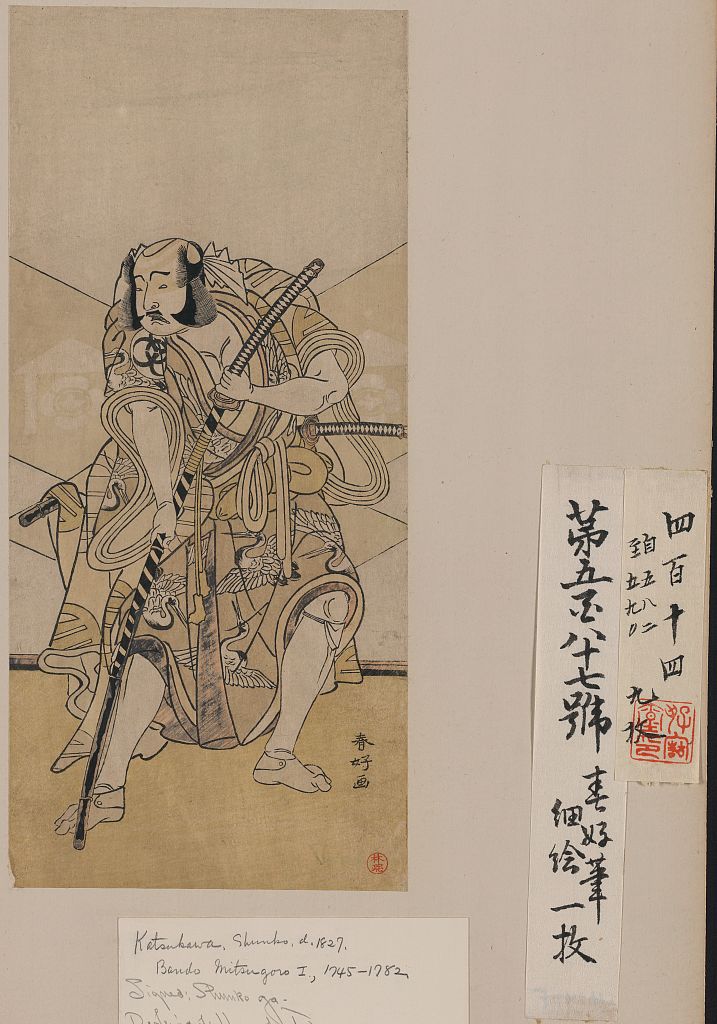 春好画
林忠
四百十四
自五八二
至五九〇
九枚
第五百八十七號
春好筆
細絵一枚
Katsukawa, Shunko, d. 1827.
Bando Mitsugoro I, 1745-1782
Signed: Shunko ga.